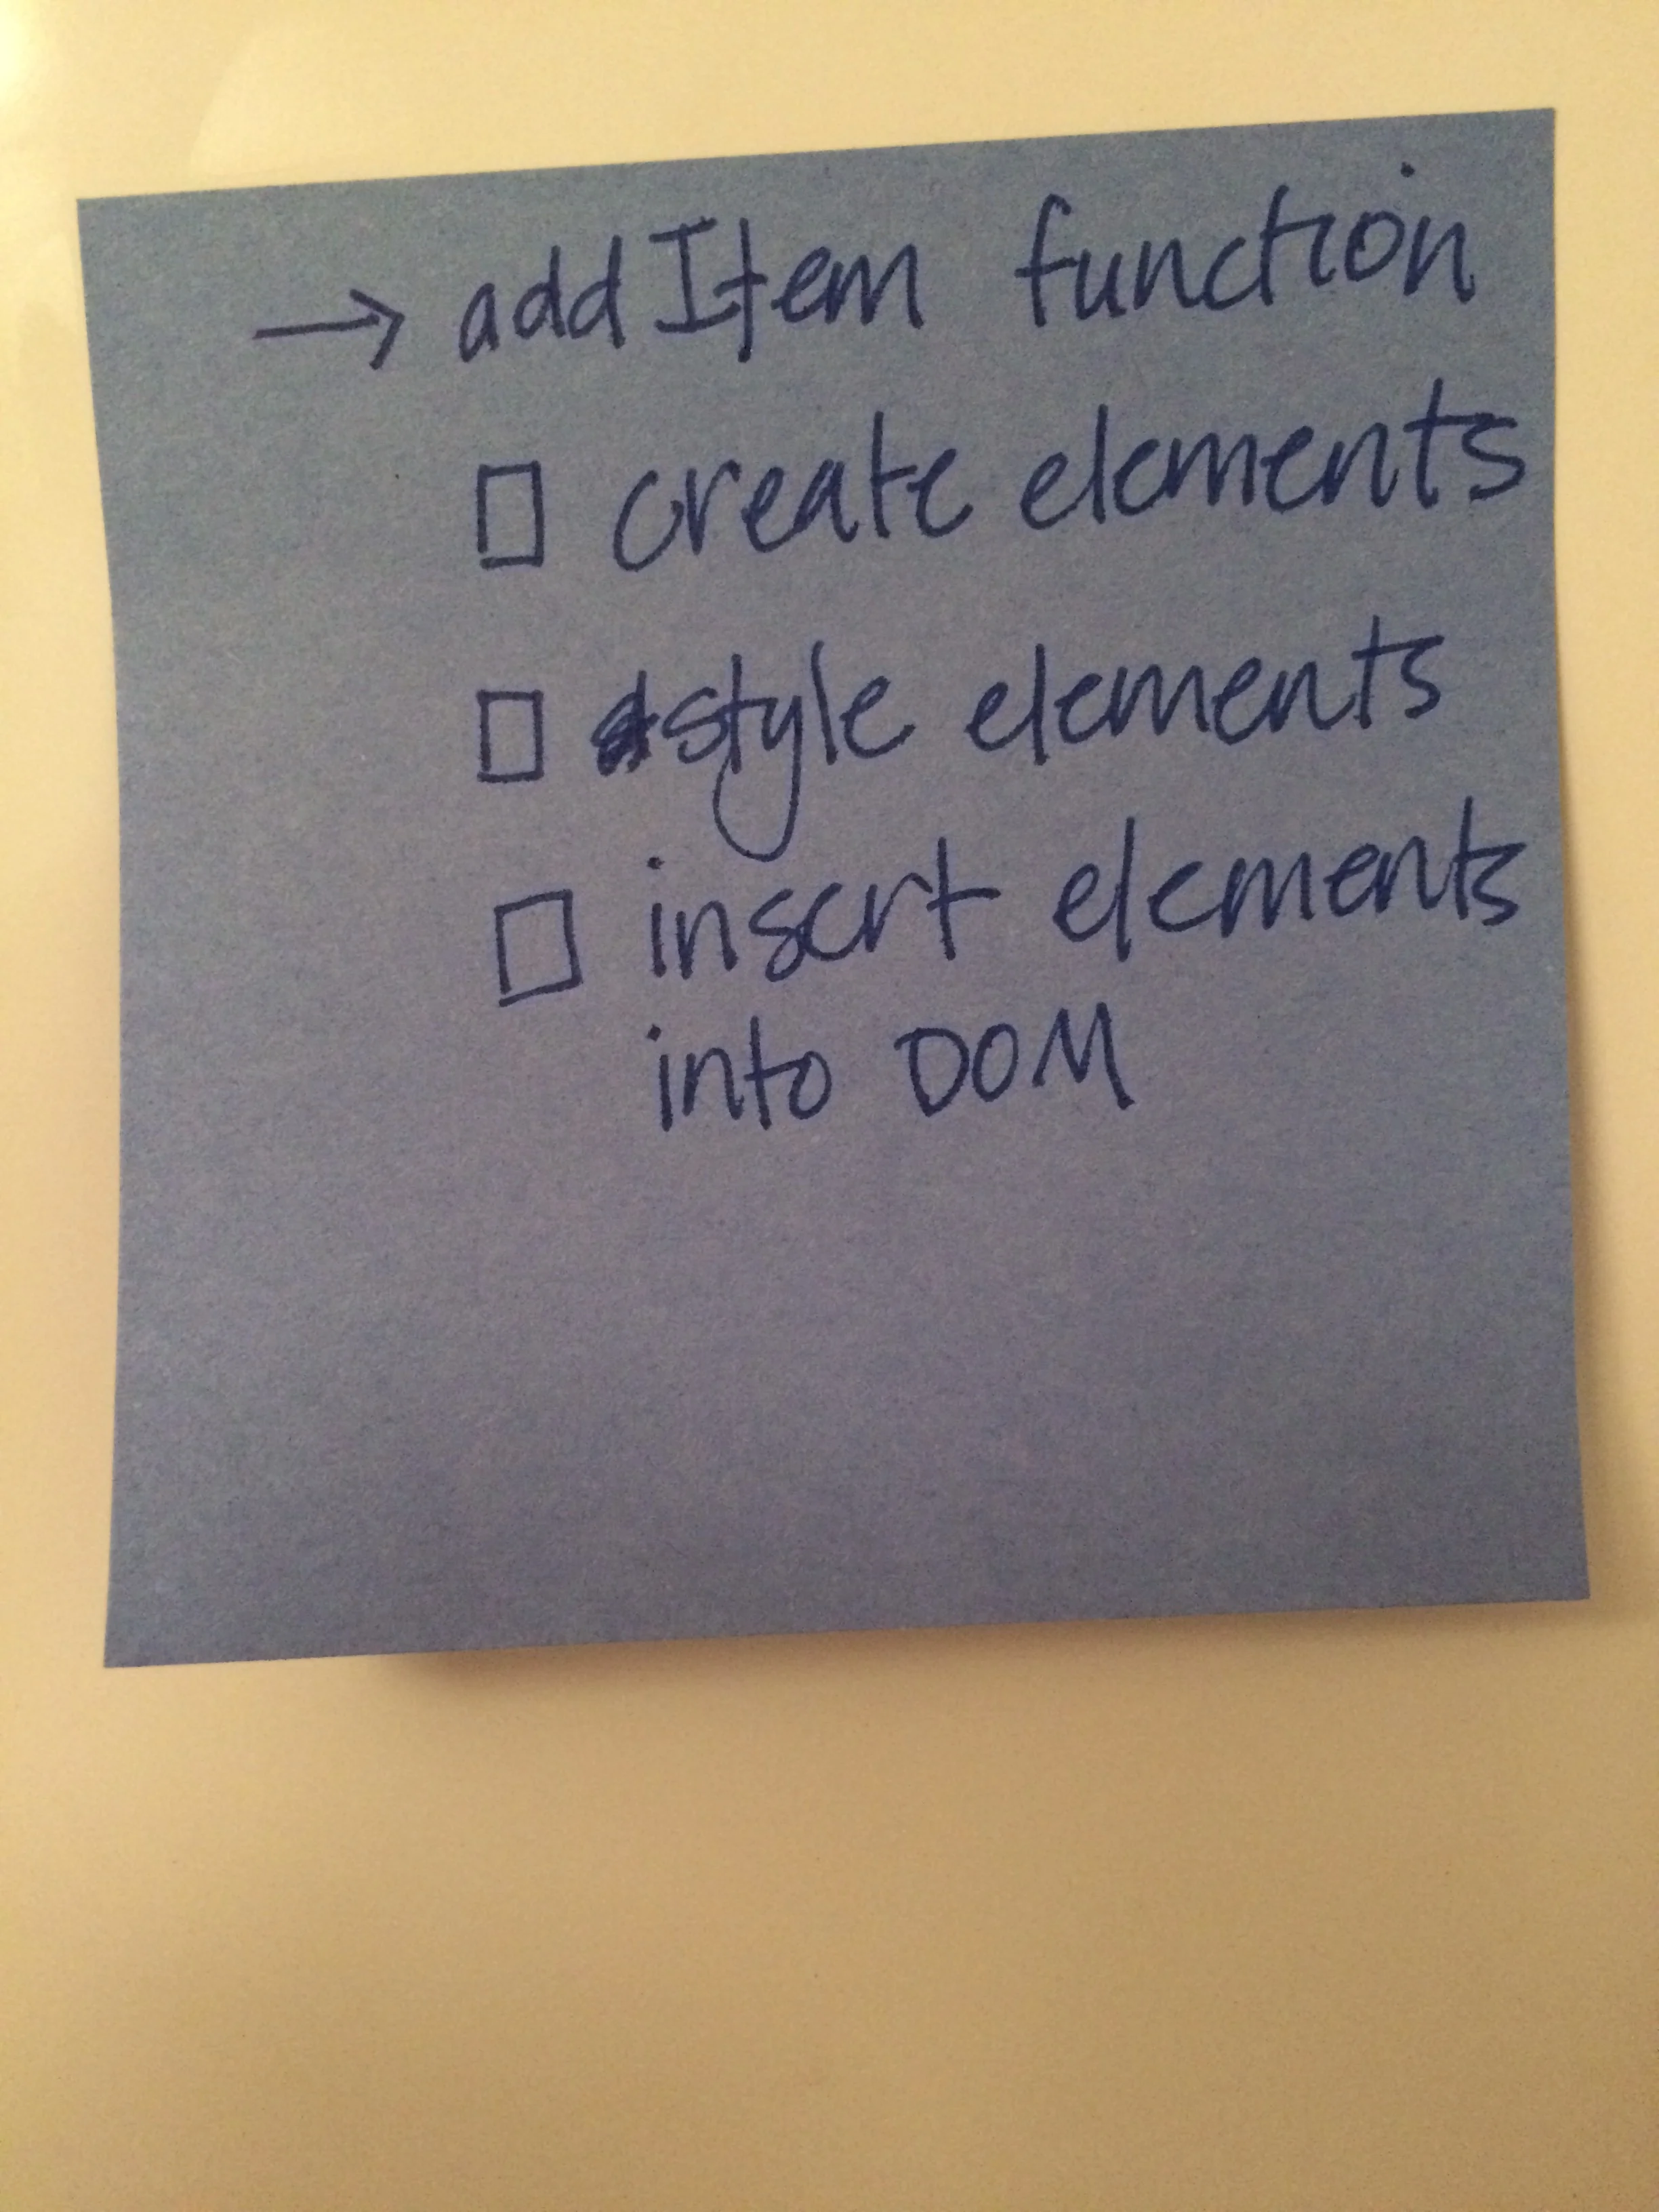 → addItem function
☐ create elements
☐ style elements
☐ insert elements
into DOM